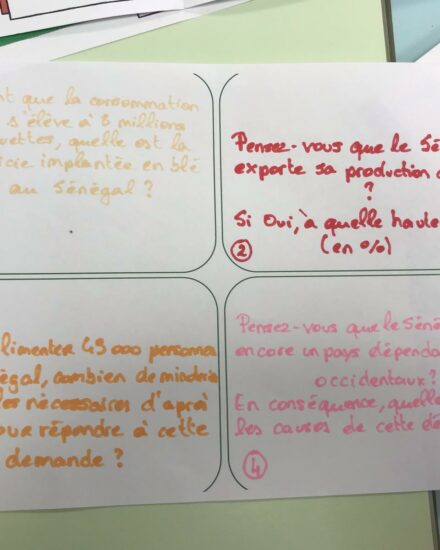 nt que la consommation
s'élève à 8 millions
uettes, quelle est la
icie implantée en blé
au Sénégal ?
Pensez-vous que le Sé
exporte sa production
?
Si Oui, à quelle haute
(en %)
2
limenter 45 000 personne
négal, combien de minoterie
les nécessaires d'aprè
our répondre à cette
demande ?
Pensez-vous que le Séné
encore un pays dépenda
occidentaux ?
En conséquence, quelle
les causes de cette dé
4